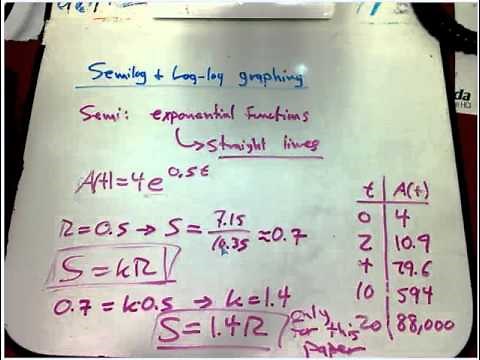 Semilog + Log-log graphing
Semi: exponential functions
↳ straight lines
A(t) = 4e^0.5t
R = 0.5 → S = 7.15/10.35 ≈ 0.7
S = kR
0.7 = k0.5 → k = 1.4
S = 1.4R
only
for this
paper
t | A(t)
0 | 4
2 | 10.9
4 | 29.6
10 | 594
20 | 88,000
da